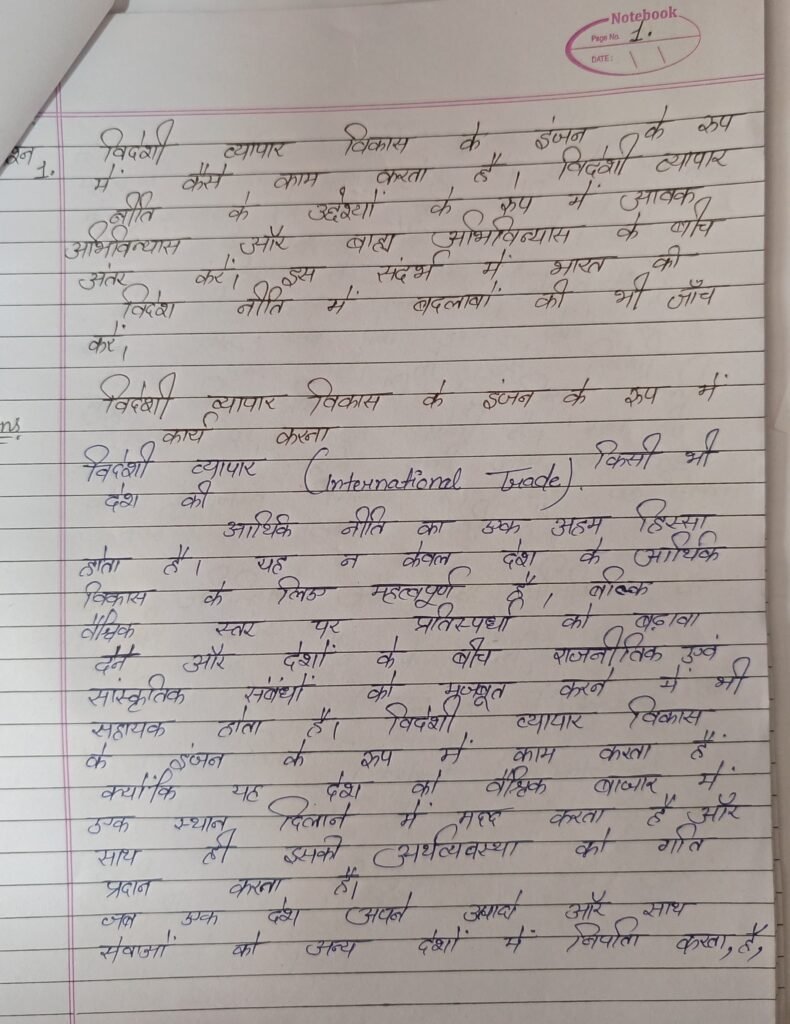 Notebook
Page No. 1.
DATE:
विदेशी व्यापार विकास के इंजन के रूप
1. में कैसे काम करता है। विदेशी व्यापार
नीति के उद्देश्यों के रूप में आवक
अभिविन्यास और बाह्य अभिविन्यास के बीच
अंतर करें। इस संदर्भ में भारत की
विदेश नीति में बदलावों की भी जाँच
करें।
विदेशी व्यापार विकास के इंजन के रूप में
कार्य करना
विदेशी व्यापार (International Trade). किसी भी
देश की
आर्थिक नीति का एक अहम हिस्सा
होता है। यह न केवल देश के आर्थिक
विकास के लिए महत्वपूर्ण है, बल्कि
वैश्विक स्तर पर प्रतिस्पर्धा को बढ़ावा
देने और देशों के बीच राजनीतिक एवं
सांस्कृतिक संबंधों को मजबूत करने में भी
सहायक होता है। विदेशी व्यापार विकास
के इंजन के रूप में काम करता है
क्योंकि यह देश को वैश्विक बाजार में
एक स्थान दिलाने में मदद करता है और
साथ ही इसकी अर्थव्यवस्था को गति
प्रदान करता है।
जब एक देश अपने और साथ
सेवाओं को अन्य देशों में करता, है,